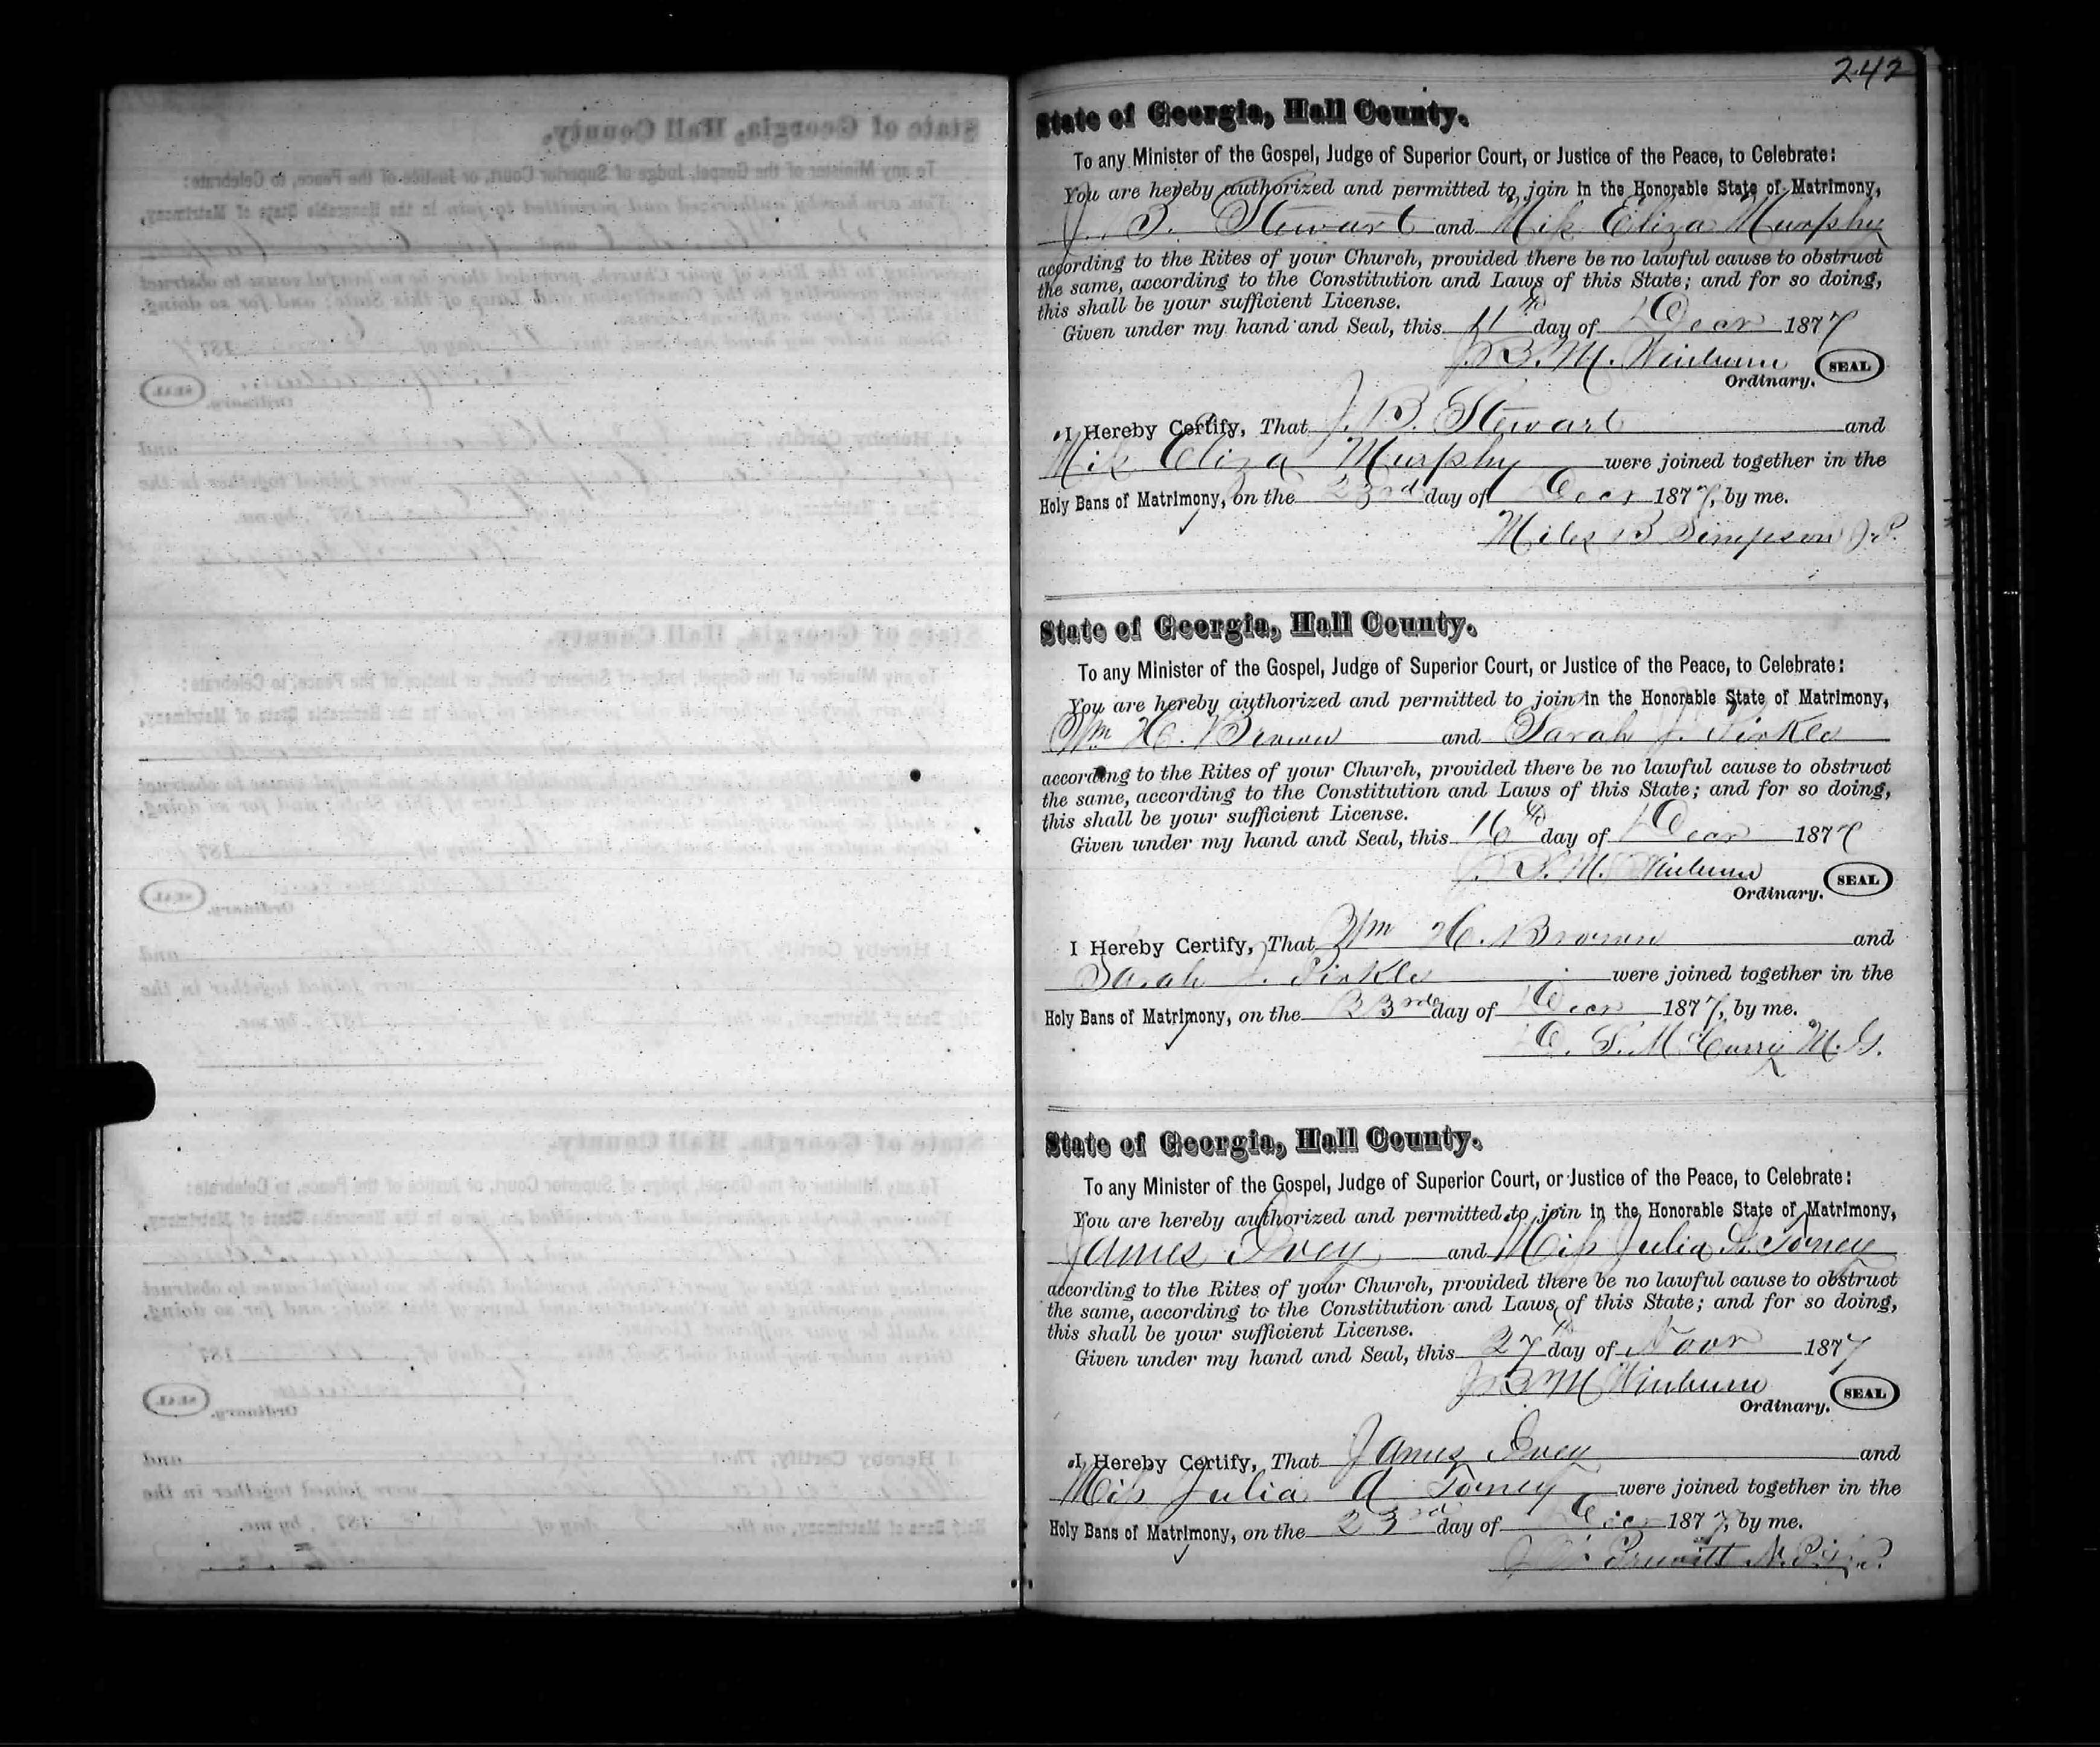 242
State of Georgia, Hall County.
To any Minister of the Gospel, Judge of Superior Court, or Justice of the Peace, to Celebrate:
You are hereby authorized and permitted to join in the Honorable State of Matrimony,
J. B. Stewart and Miss Eliza Murphy
according to the Rites of your Church, provided there be no lawful cause to obstruct
the same, according to the Constitution and Laws of this State; and for so doing,
this shall be your sufficient License.
Given under my hand and Seal, this 11th day of Decr 1877
J. B. M. Winburn SEAL
Ordinary.
I Hereby Certify, That J. B. Stewart and
Miss Eliza Murphy were joined together in the
Holy Bans of Matrimony, on the 23rd day of Decr 1877, by me.
Miles B Simpson J.P.
State of Georgia, Hall County.
To any Minister of the Gospel, Judge of Superior Court, or Justice of the Peace, to Celebrate:
You are hereby authorized and permitted to join in the Honorable State of Matrimony,
Wm H. Brown and Sarah J. Pirkle
according to the Rites of your Church, provided there be no lawful cause to obstruct
the same, according to the Constitution and Laws of this State; and for so doing,
this shall be your sufficient License.
Given under my hand and Seal, this 16th day of Decr 1877
J. B. M. Winburn SEAL
Ordinary.
I Hereby Certify, That Wm H. Brown and
Sarah J. Pirkle were joined together in the
Holy Bans of Matrimony, on the 23rd day of Decr 1877, by me.
D. S. McCurry M. G.
State of Georgia, Hall County.
To any Minister of the Gospel, Judge of Superior Court, or Justice of the Peace, to Celebrate:
You are hereby authorized and permitted to join in the Honorable State of Matrimony,
James Ivey and Miss Julia A. Toney
according to the Rites of your Church, provided there be no lawful cause to obstruct
the same, according to the Constitution and Laws of this State; and for so doing,
this shall be your sufficient License.
Given under my hand and Seal, this 27th day of Novr 1877
J. B. M. Winburn SEAL
Ordinary.
I Hereby Certify, That James Ivey and
Miss Julia A Toney were joined together in the
Holy Bans of Matrimony, on the 23rd day of Decr 1877, by me.
Pruitt N.P.